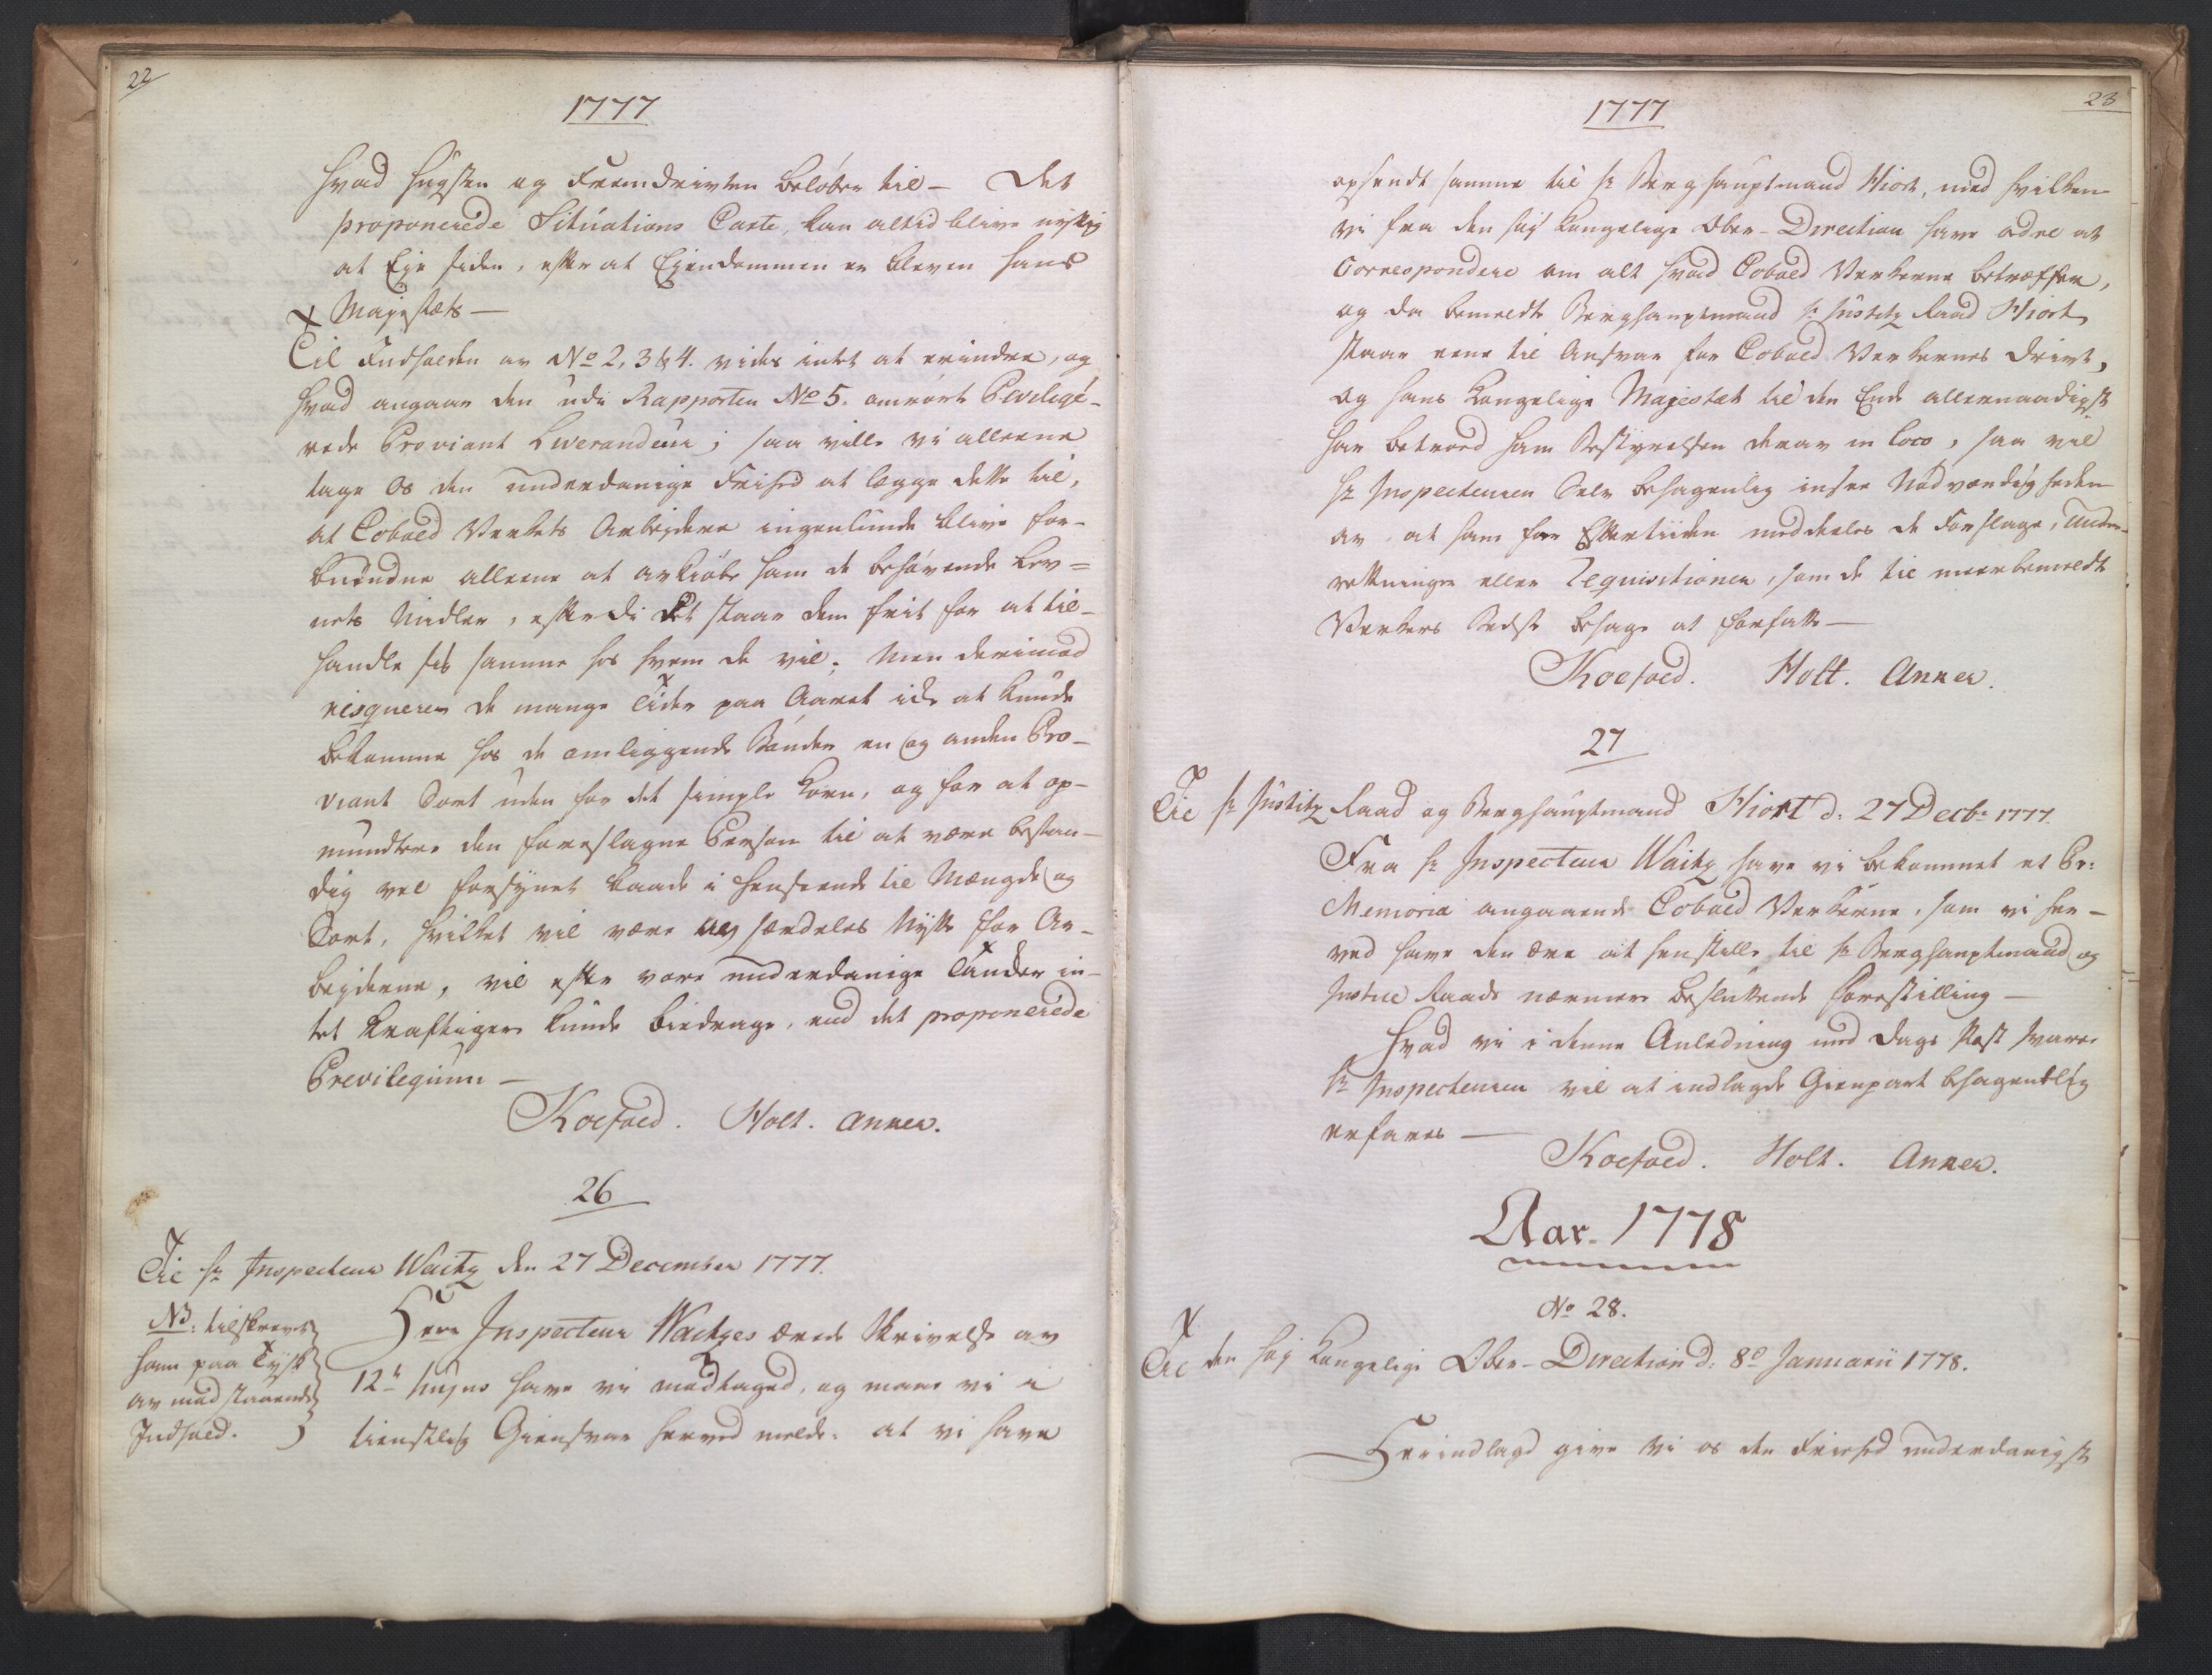 22
1777
hvad hugsten og Fremdrivten beløber til — Det
proponerede Situations Carte, kan altid blive nyttig
at Eje siden, efter at Ejendommen er bleven hans
Majestæts —
Til Indholden av No 2, 3 & 4. vides intet at erindre, og
hvad angaar den udi Rapporten No 5. omrørte Privilegé-
rede Proviant Liverandeur; saa ville vi alleene
tage os den underdanige Frihed at legge dette til,
at Cobold Verkets Arbejdere ingenlunde blive for-
bundne alleene at avkiøbe ham de behøvende Lev=
nets Midler, efterdi det staar dem frit for at til-
handle sig samme hos hvem de vil; Men derimod
risquerer de mange Tider paa Aaret ikke at kunde
bekomme hos de omliggende Bønder en og anden Pro-
viant Sort uden for det simple Korn, og for at op-
mundtre den foreslagne Person til at være bestan-
dig vel forsynet baade i Henseende til Mængde og
Sort, hvilket vil være av særdeles Nytte for Ar-
bejderne, vil efter vore underdanige Tanker in-
tet kraftigere kunde bidrage, end det proponerede
Previlegium —
Koefoed. Holt. Anker.
26
Til Hr Inspecteur Waitz den 27 December 1777.
NB: tilskreves
ham paa Tysk
av modstaaende
Indhold.
Herr Inspecteur Waitzes ærede Skrivelse av
12te hujus have vi modtaged, og maae vi i
tienstlig Giensvar herved melde: at vi have
23
1777
opsendt samme til Hr Berghauptmand Hiort, med hvilken
vi fra den høj Kongelige Ober-Direction have odre at
Correspondere om alt hvad Cobold Verkerne betræffer,
og da bemeldte Berghauptmand Hr Justitz Raad Hiort
staar eene til Ansvar for Cobold Verkernes Drivt,
og hans Kongelige Majestet til den Ende allernaadigst
har betroed ham Bestyrelsen derav in loco, saa vil
Hr Inspecteuren Selv behagenlig indsee Nødvændigheden
av, at ham for Eftertiiden meddeeles de Forslage, Under-
rettninger eller Requisitioner, som de til meerbemeldte
Verkers Bedste behage at forfatte —
Koefoed. Holt. Anker.
27
Til Hr Justitz Raad og Berghauptmand Hiort d: 27 Decbr 1777.
Fra Hr Inspecteur Waitz have vi bekommet et Pr:
Memoria angaaende Cobold Verkerne, som vi her-
ved have den ære at henstille til Hr Berghauptmand og
Justice Raads nærmere besluttende Forestilling —
Hvad vi i denne Anledning med Dags Post svarer
Hr Inspecteuren vil at indlagde Gienpart behagentlig
erfares —
Koefoed. Holt. Anker.
Aar. 1778
No 28.
Til den høj Kongelige Ober-Direction d: 8de Januarii 1778.
Herindlagd give Vi os den Friehed underdanigst